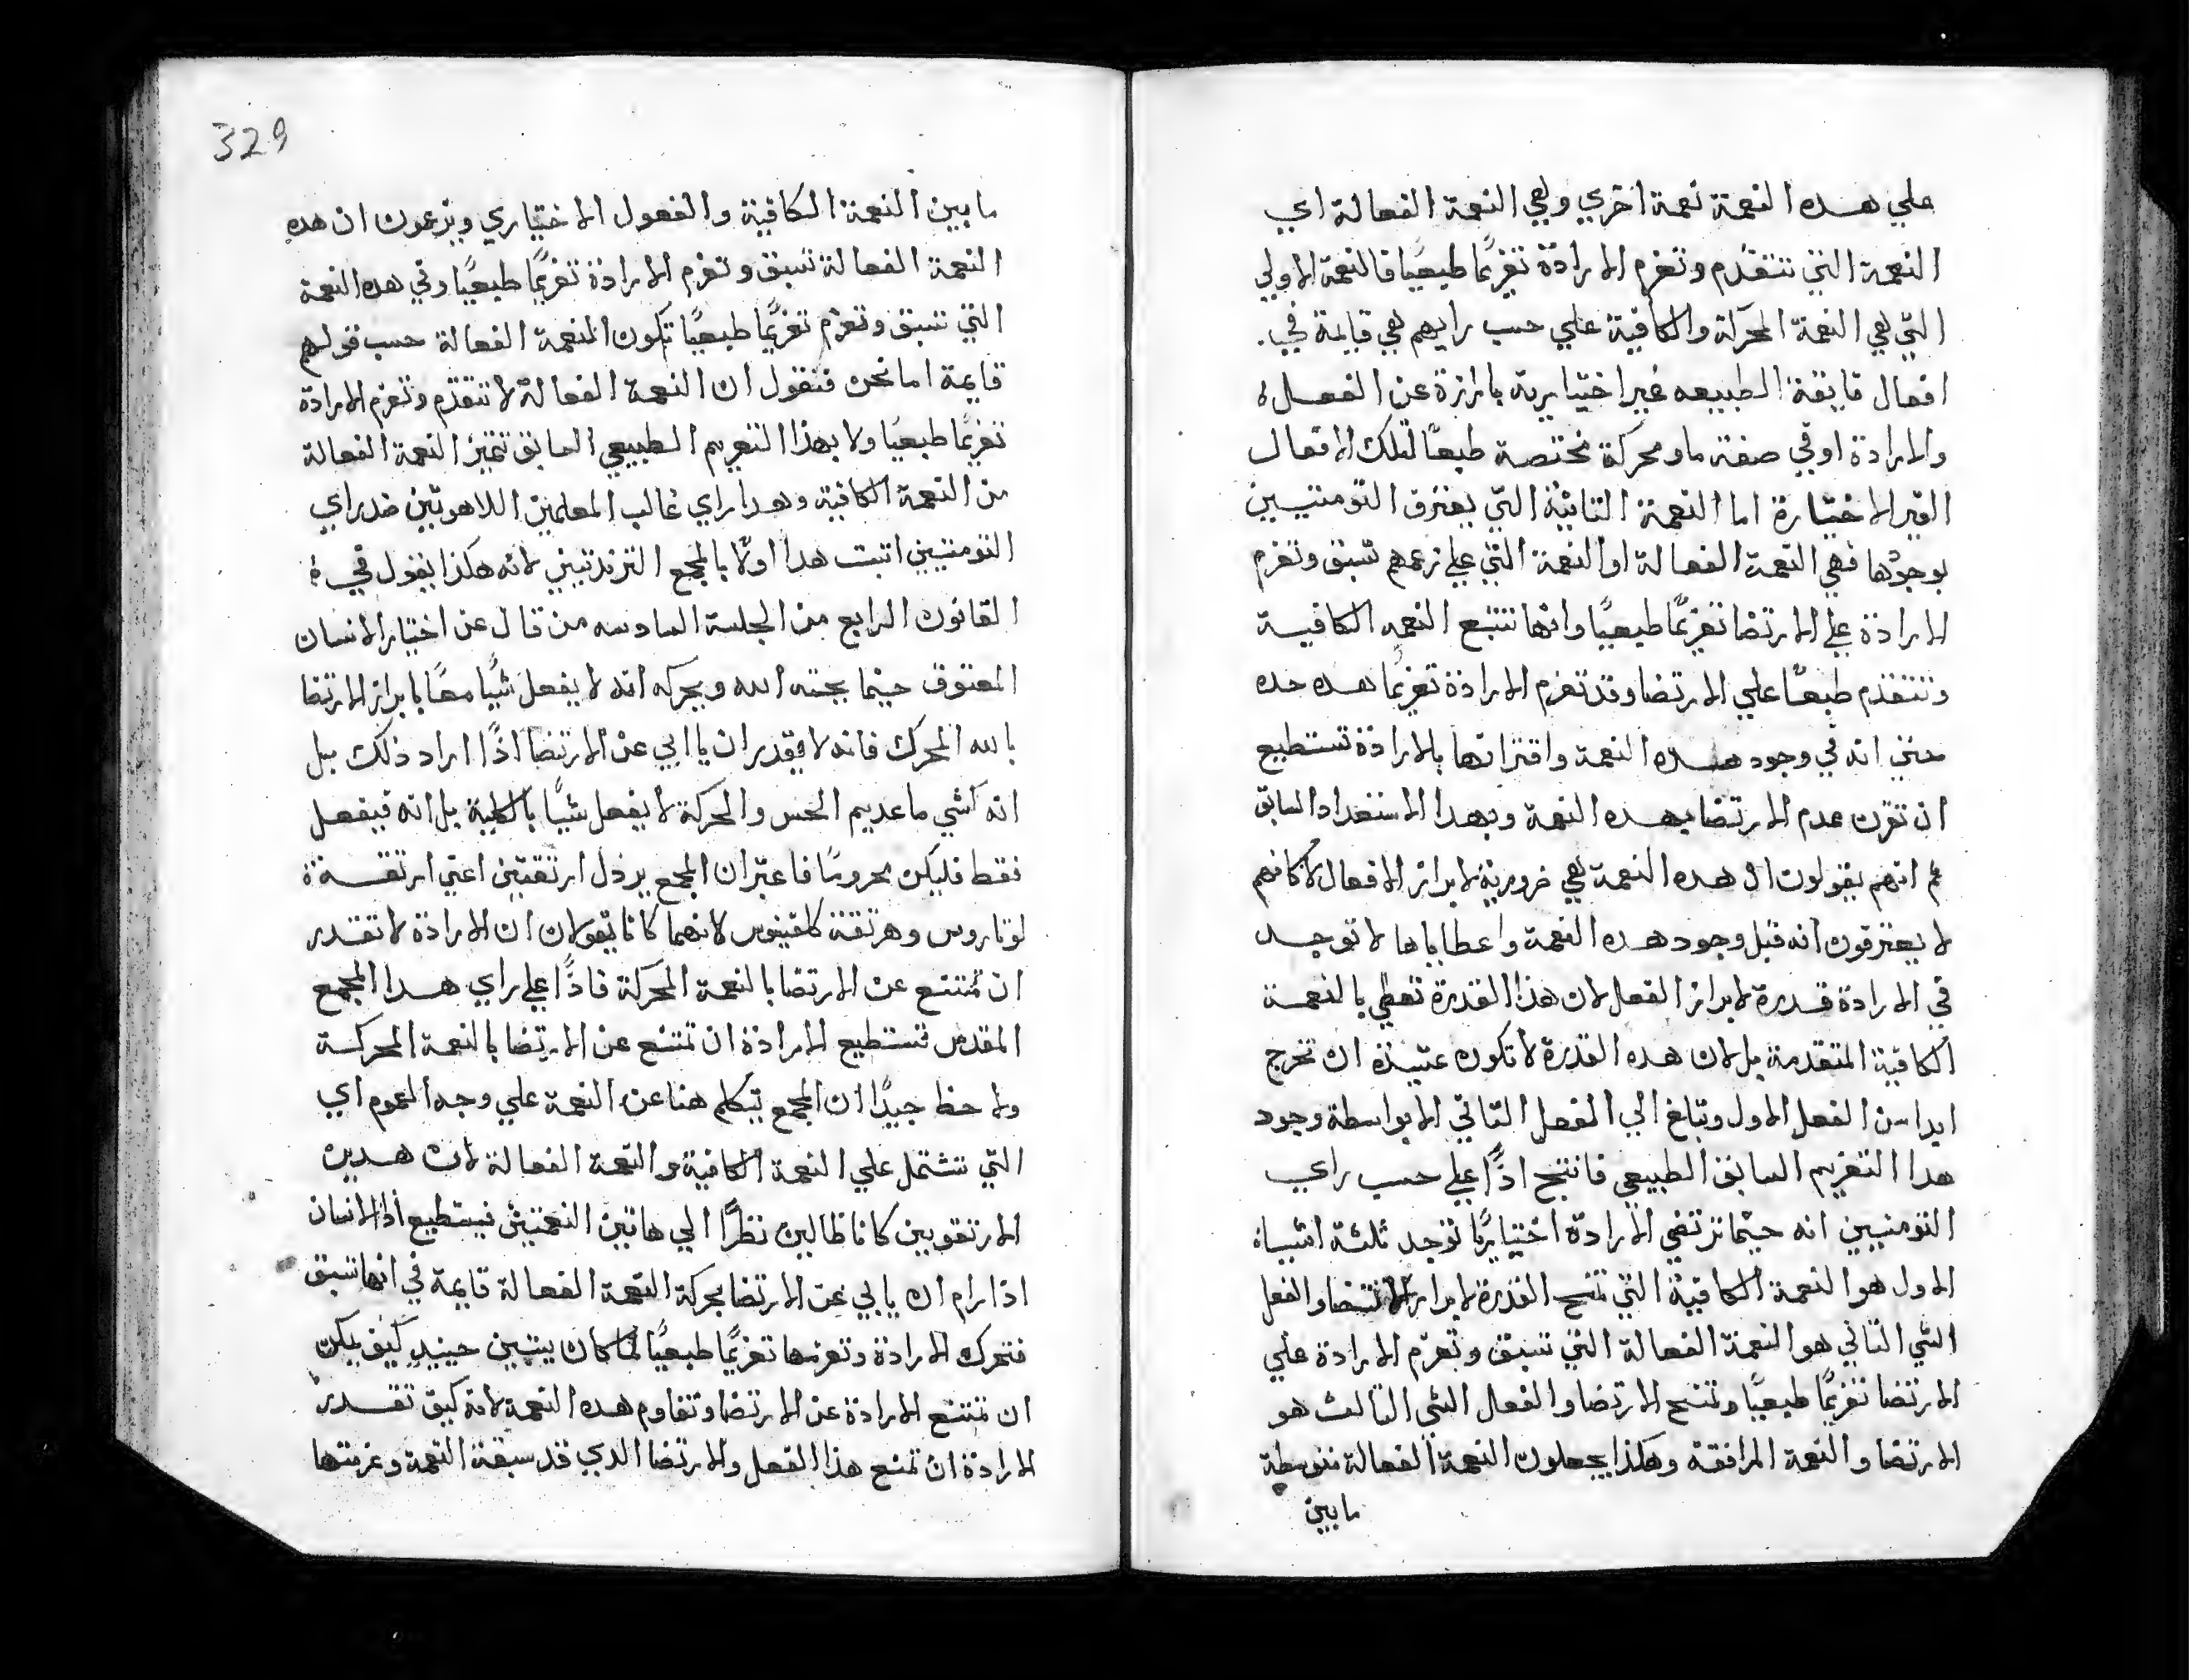 علي هده النعمة نعمة اخري وهي النعمة الفعالة اي
النعمة التي تتقدم وتعزم الارادة تعزيمًا طبيعيًا فالنعمة الاولي
التي هي النعمة المحركة والكافية علي حسب رايهم هي قايمة في
افعال فايقة الطبيعه غير اختيارية بارزة عن الفعل
والارادة اوفي صفة ما ومحركة مختصة طبعًا لتلك الافعال
الغير الاختيارة اما النعمة التانية التي يعترف التومنتيسين
بوجودها فهي النعمة الفعالة او النعمة التي علي زعمهم تسبق وتعزم
الارادة علي الارتضا تعزيمًا طبيعيًا وانها تتبع النعمه الكافيـة
وتتقدم طبعًا علي الارتضا وقد تعزم الارادة تعزيمًا هده حده
حتي انه في وجود هده النعمة واقترانها بالارادة تستطيع
ان تقرن عدم الارتضا بهده النعمة وبهدا الاستعداد السابق
ثم انهم يقولون ان هده النعمة هي ضرورية لابراز الافعال لا كانهم
لا يعترفون انه قبل وجود هده النعمة واعطاياها لا توجـد
في الارادة قدرة لابراز الفعل لان هذا القدرة تعطي بالنعمة
الكافية المتقدمة بل لان هده القدرة لا تكون عتيدة ان تخرج
ابدا من الفعل الاول وتبلغ الي الفعل التاني الا بواسطة وجود
هدا التعزيم السابق الطبيعي فانتج اذًا علي حسب راي
التومنيسين انه حيثما ترتضي الارادة اختياريًا توجد ثلثة اشياء
الاول هو النعمة الكافية التي تمنح القدرة لابراز الارتضا والفعل
الشي التاني هو النعمة الفعالة التي تسبق وتعزم الارادة علي
الارتضا تعزيمًا طبيعيًا وتمنح الارتضا والفعل الشي التالت هو
الارتضا والنعمة المرافقة وهكذا يجعلون النعمة الفعالة متوسطة
ما بين
329
ما بين النعمة الكافية والفعول الاختياري ويزعمون ان هده
النعمة الفعالة تسبق وتعزم الارادة تعزيمًا طبيعيًا وفي هده النعمة
التي تسبق وتعزم تعزيمًا طبيعيًا تكون النعمة الفعالة حسب قولهم
قايمة اما نحن فنقول ان النعمة الفعالة لا تتقدم وتعزم الارادة
تعزيمًا طبعيًا ولا بهذا التعزيم الطبيعي السابق تتميز النعمة الفعالة
من النعمة الكافية وهدا راي غالب المعلمين اللاهوتيين ضد راي
التومنتيسين اتبت هدا اولًا بالمجمع التريدنتيني لانه هكذا يقول في
القانون الرابع من الجلسة السادسه من قال عن اختيار الانسان
المعتوق حينما يحتنه الله ويحركه انه لا يفعل شيًا معًا بابراز الارتضا
بالله المحرك فانه لا يقدر ان يابي عن الارتضا اذًا اراد ذلك بل
انه كشي ما عديم الحس والحركة لا يفعل شيًا بالكلية بل انه فيفعل
فقط فليكن محرومًا فاعتبر ان المجمع يرذل ارتقتين اعني ارتقـة
لوتاروس وهرتقة كلفينوس لانهما كانا يقولان ان الارادة لا تقـدر
ان تمتنع عن الارتضا بالنعمة المحركة فاذًا علي راي هـدا المجمع
المقدس فتستطيع الارادة ان تمتنع عن الارتضا بالنعمة المحركـة
ولاحظ جيدًا ان المجمع يتكلم هنا عن النعمة علي وجه العموم اي
التي تشتمل علي النعمة الكافية والنعمة الفعالة لان هـدين
الارتقويين كانا ظالين نظرًا الي هاتين النعمتين فيستطيع اذا الانسان
اذا رام ان يابي عن الارتضا بحركة النعمة الفعالة قايمة في انها تسبق
فتحرك الارادة وتعزمها تعزيمًا طبعيًا لما كان يتبين حينيد كيف يمكن
ان تمتنع الارادة عن الارتضا وتقاوم هده النعمة لانه كيق تقـدر
الارادة ان تمنع هذا الفعل والارتضا الدي قد سبقة النعمة وعزمتها